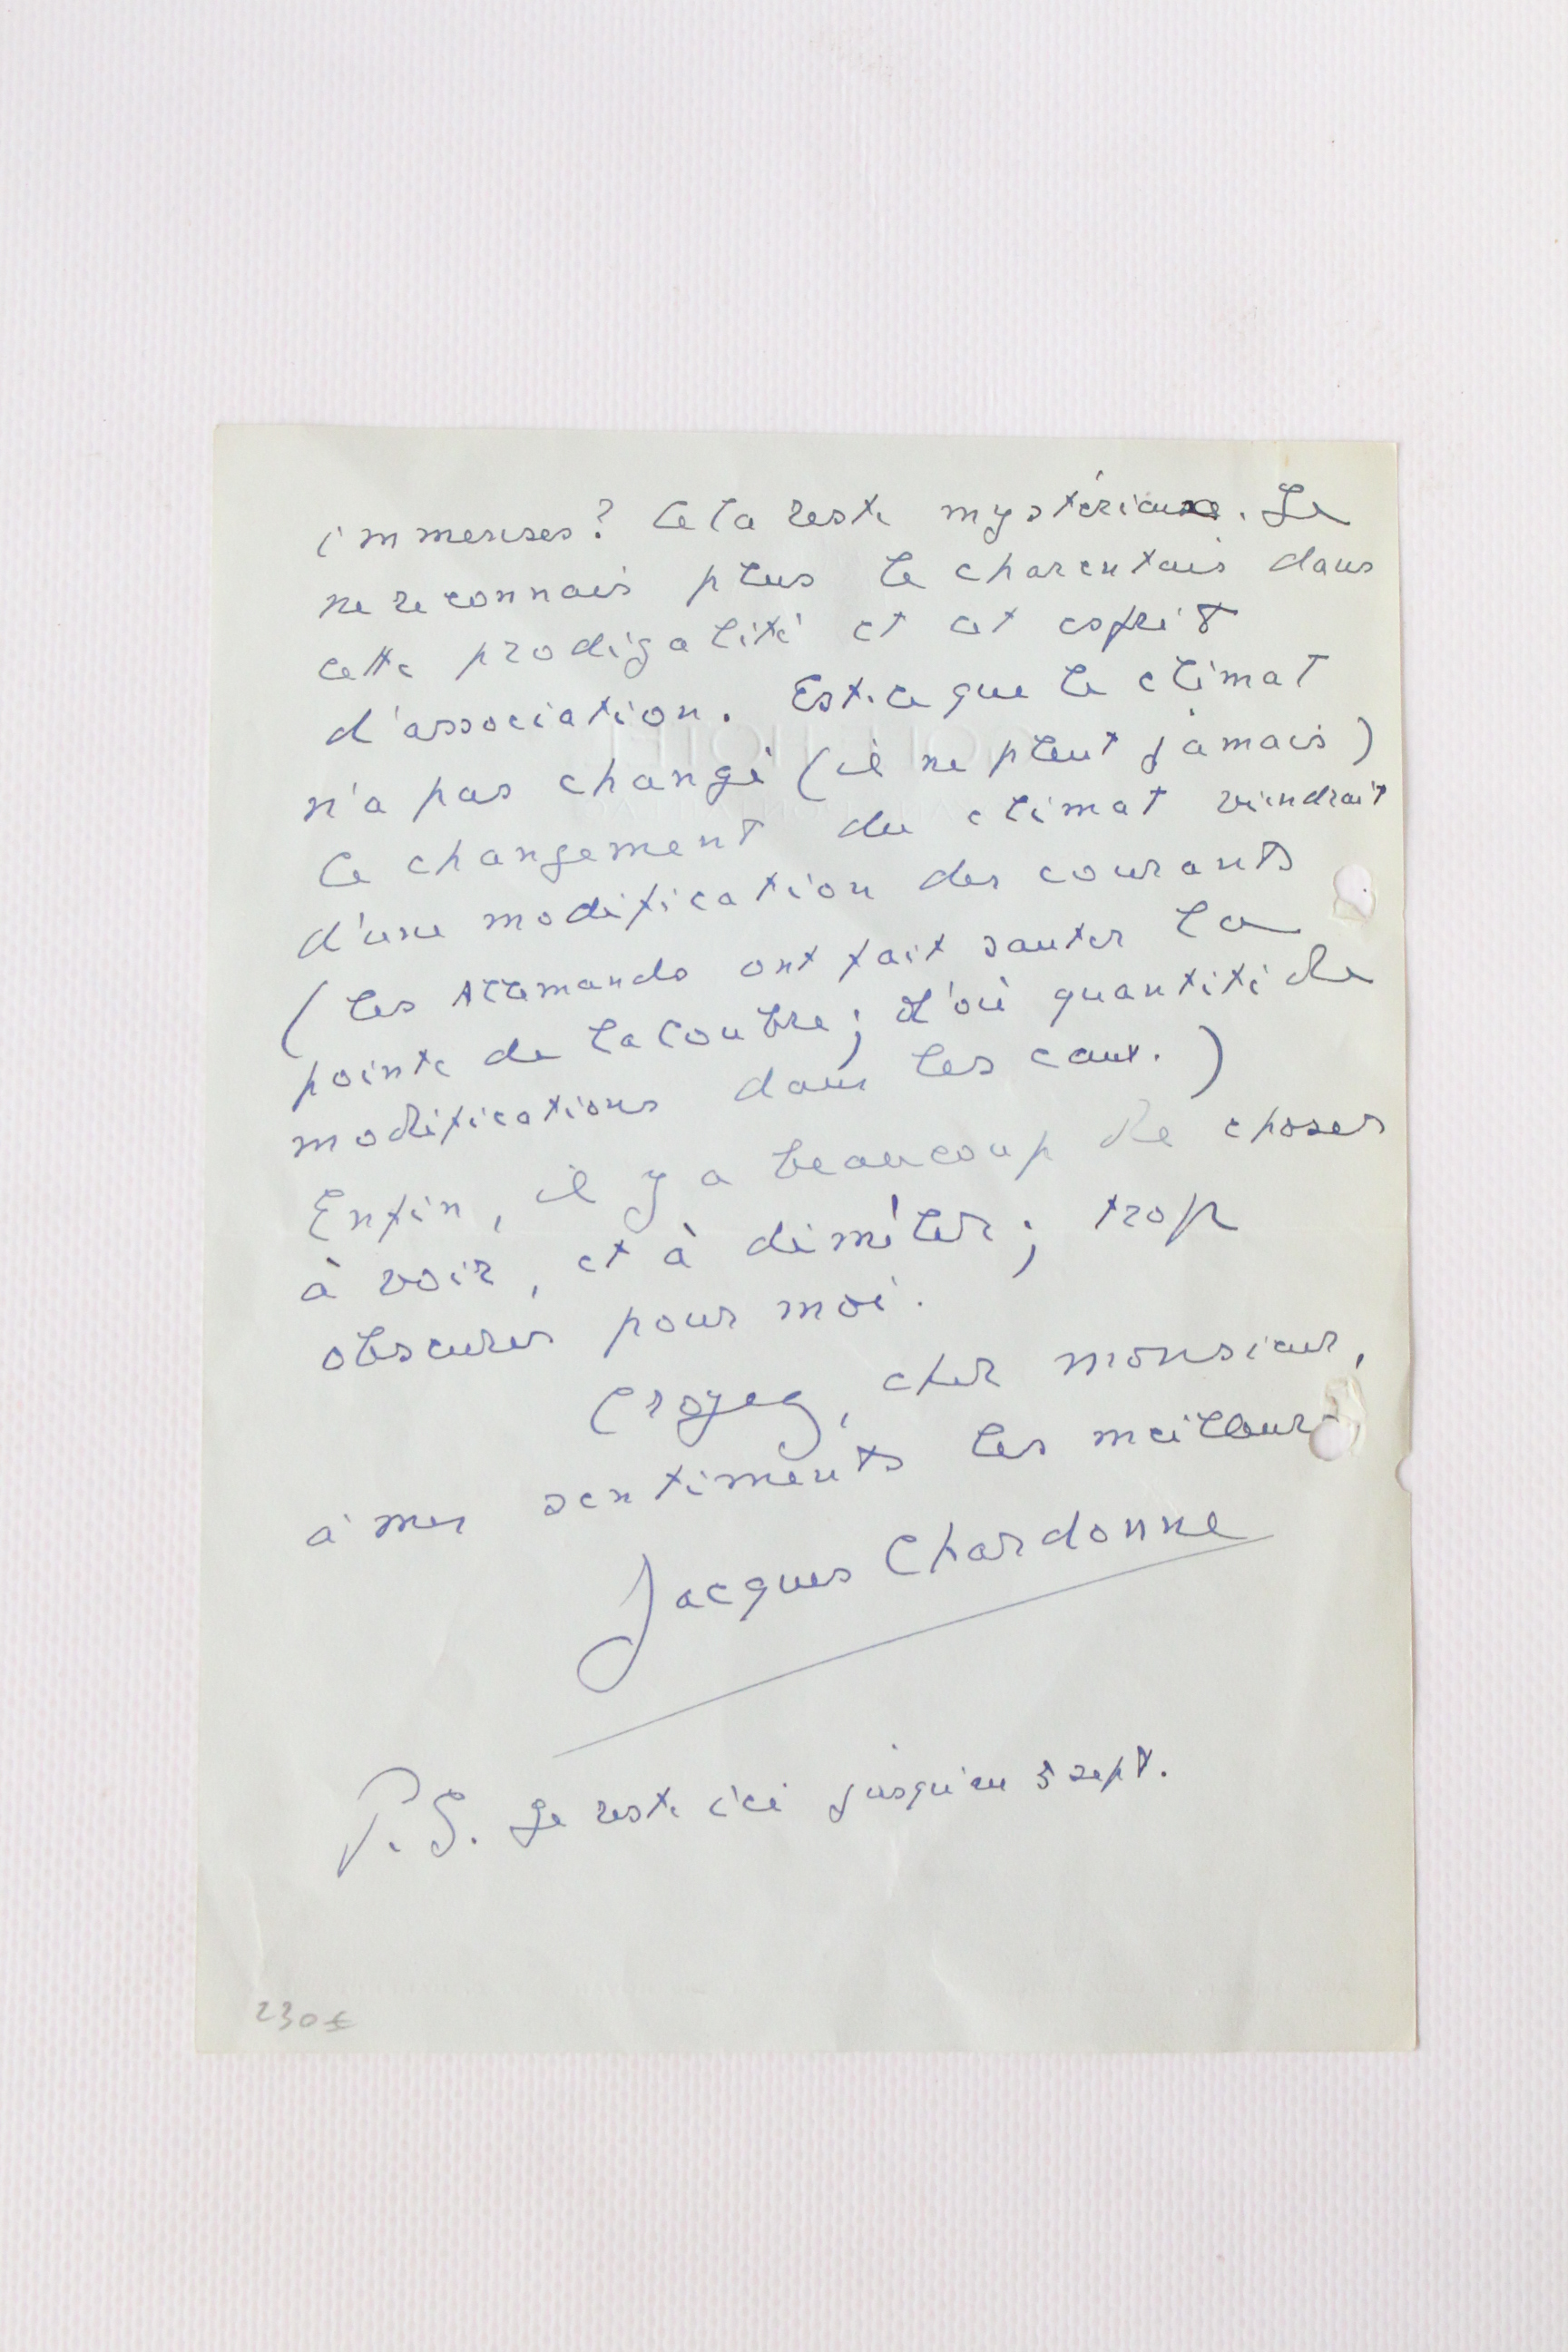 immenses ? Cela reste mystérieux. Je
ne reconnais plus le charentais dans
cette prodigalité et cet esprit
d'association. Est-ce que le climat
n'a pas changé (il ne pleut jamais)
Ce changement du climat viendrait
d'une modification des courants
(les Allemands ont fait sauter la
pointe de la Coubre ; d'où quantité de
modifications dans les eaux.)
Enfin, il y a beaucoup de choses
à voir, et à démêler ; trop
obscures pour moi.
Croyez, cher monsieur,
à mes sentiments les meilleurs
Jacques Chardonne
P.S. Je reste ici jusqu'au 5 sept.
230 €